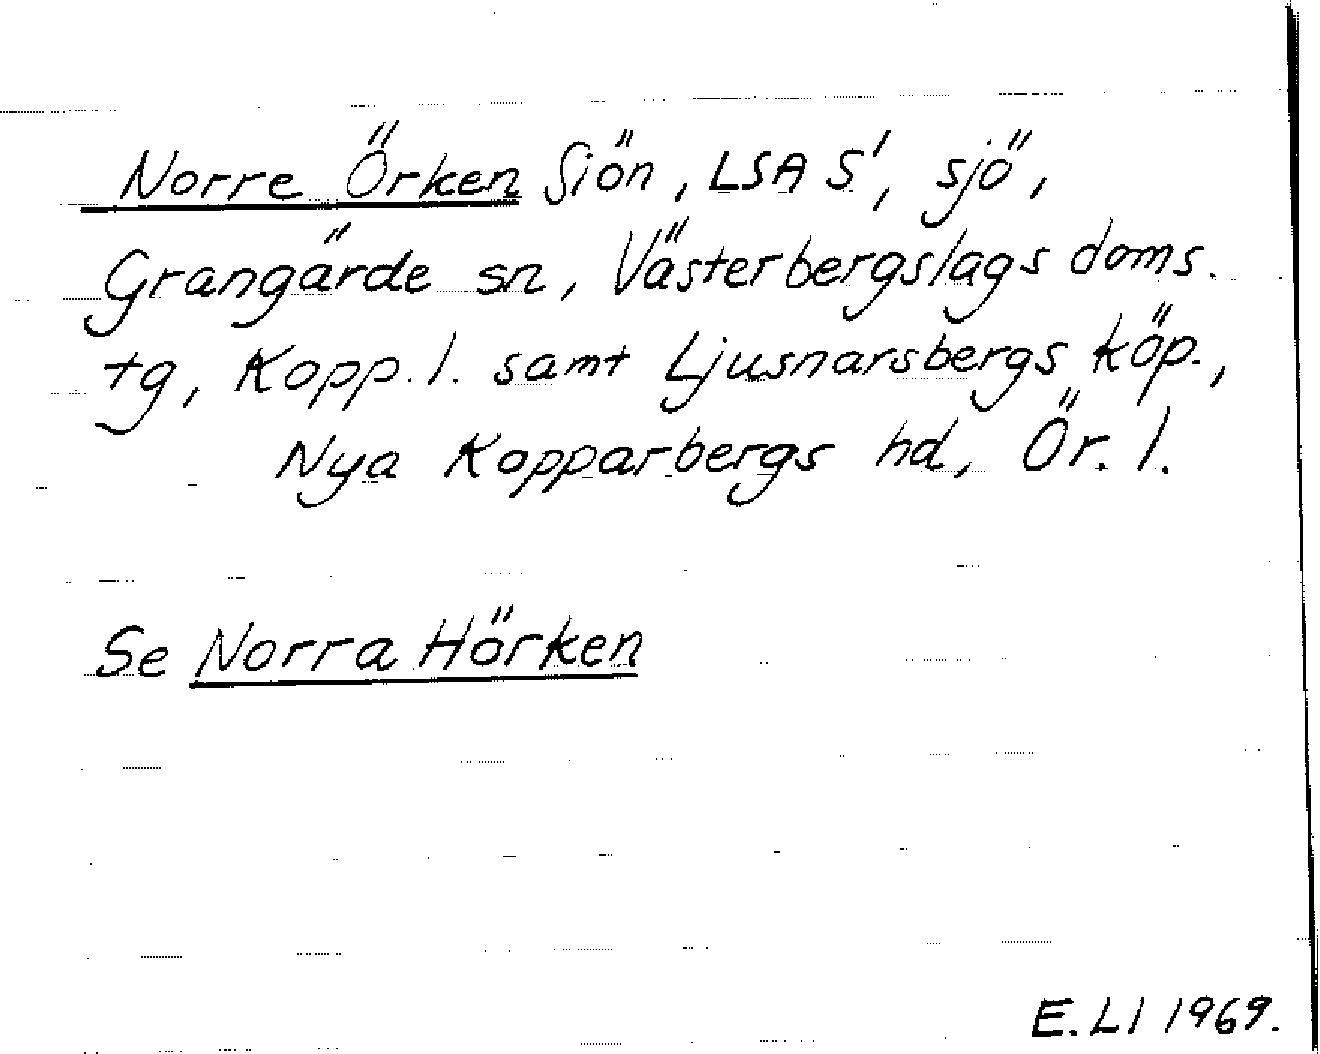 Norre Örken Siön, LSA S¹, sjö,
Grangärde sn, Västerbergslags doms.
tg, Kopp. l. samt Ljusnarsbergs köp.,
Nya Kopparbergs hd, Ör. l.
Se Norra Hörken
E. LI 1969.